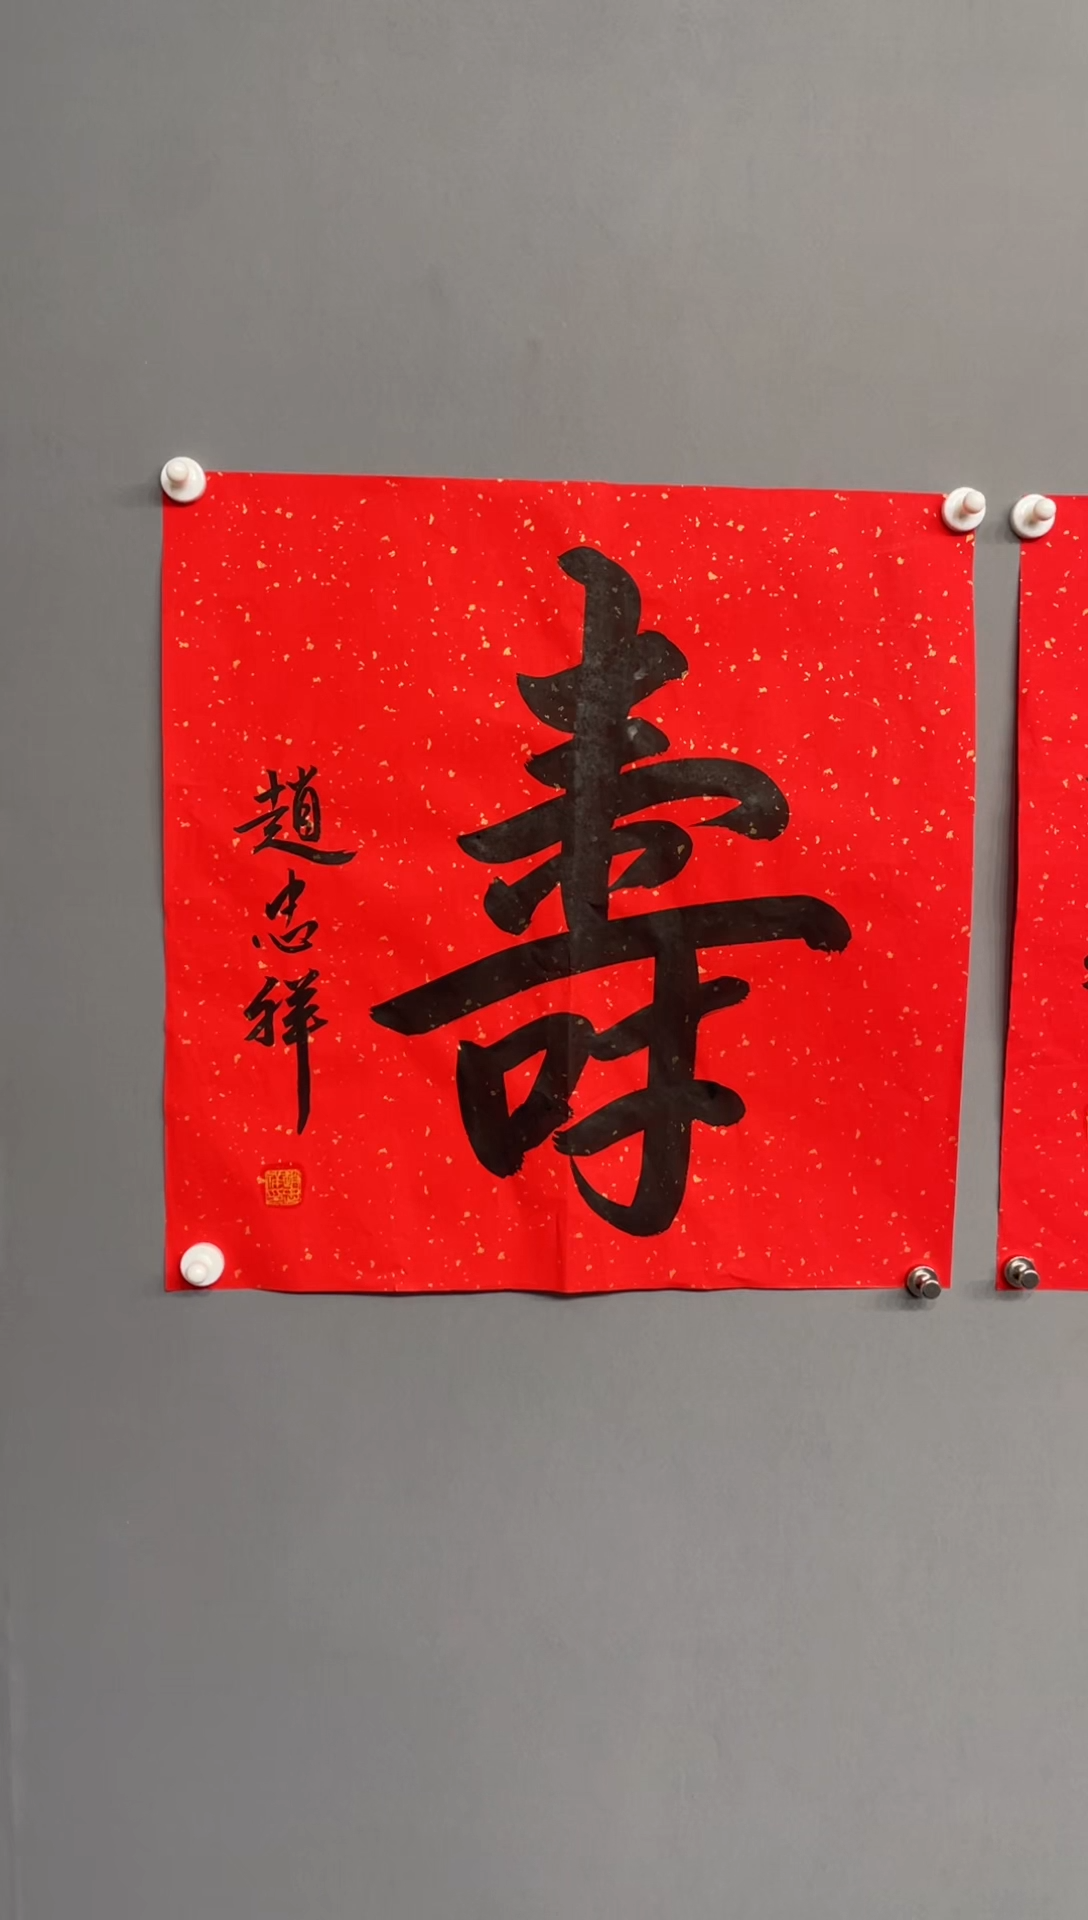 壽
趙忠祥